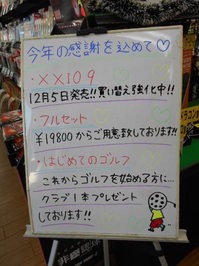 今年の感謝を込めて♡
・XX109
12月5日発売!!買い替え強化中!!
・フルセット
¥19800からご用意致しております!!
・はじめてのゴルフ
これからゴルフを始める方に…
クラブ1本プレゼント
しております!!